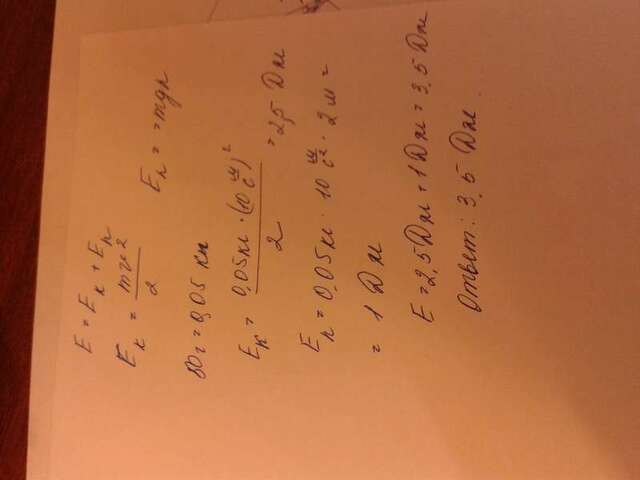 E = Eк + Eп
Eк = mv²/2 Eп = mgh
50г = 0,05 кг
Eк = 0,05кг · (10 м/с)²/2 = 2,5 Дж
Eп = 0,05кг · 10 м/с² · 2м =
= 1 Дж
E = 2,5Дж + 1Дж = 3,5 Дж
Ответ: 3,5 Дж.